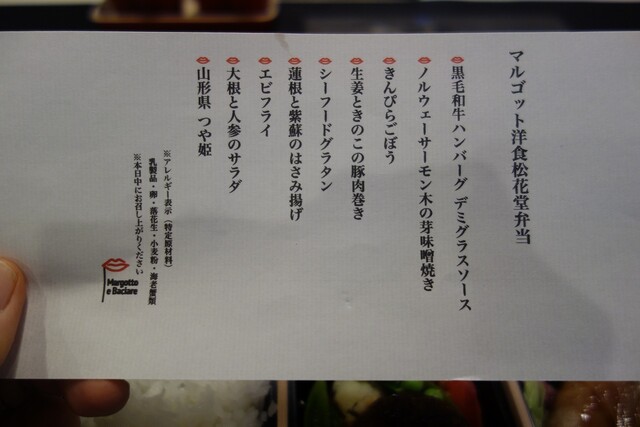 マルゴット洋食松花堂弁当
黒毛和牛ハンバーグ デミグラスソース
ノルウェーサーモン木の芽味噌焼き
きんぴらごぼう
生姜ときのこの豚肉巻き
シーフードグラタン
蓮根と紫蘇のはさみ揚げ
エビフライ
大根と人参のサラダ
山形県 つや姫
※アレルギー表示（特定原材料）
乳製品・卵・落花生・小麦粉・海老蟹類
※本日中にお召し上がりください
Margotto
e Baciare